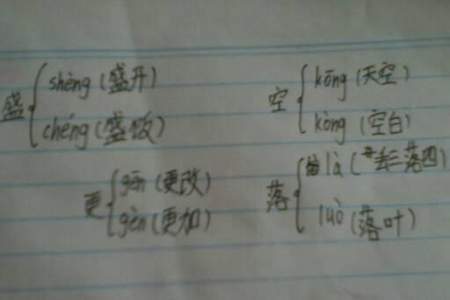 盛 shèng (盛开)
chéng (盛饭)
空 kōng (天空)
kòng (空白)
更 gēn (更改)
gèn (更加)
落 là (丢三落四)
luò (落叶)